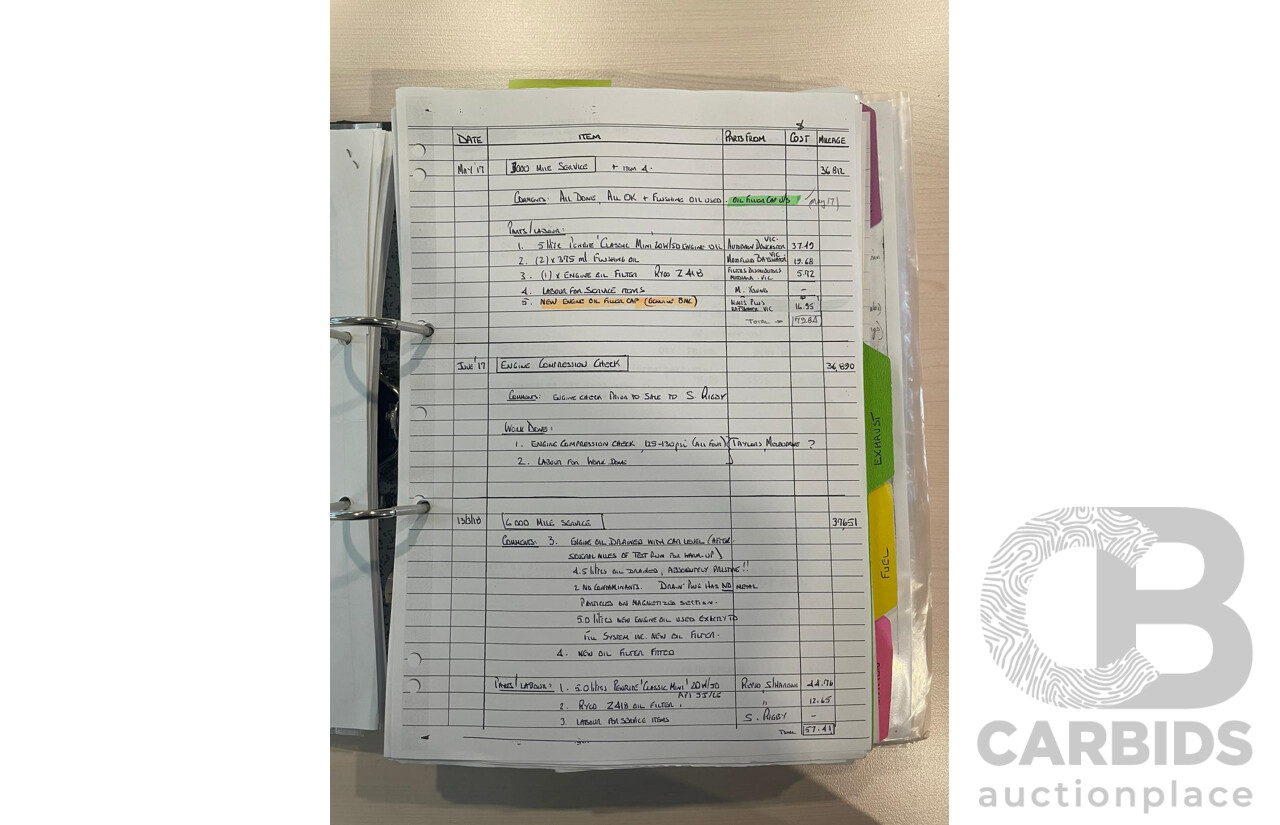 $
DATE ITEM PARTS FROM COST MILEAGE
MAY '17 3000 MILE SERVICE + ITEM 4. 36812
COMMENTS: ALL DONE, ALL OK + FLUSHING OIL USED. OIL FILLER CAP U/S (MAY 17)
PARTS/LABOUR:
1. 5 LITRE PENRITE 'CLASSIC MINI' 20W/50 ENGINE OIL AUTOBARN DONCASTER VIC. 37.49
2. (2) x 375 ml FLUSHING OIL BAYSWATER VIC 19.68
3. (1) x ENGINE OIL FILTER RYCO Z41B FILTERS VIC 5.72
4. LABOUR FOR SERVICE ITEMS M. YOUNG -
5. NEW ENGINE OIL FILLER CAP (GENUINE BMC) MINIS PLUS BAYSWATER VIC 16.95
TOTAL → 79.84
JUNE '17 ENGINE COMPRESSION CHECK 36,890
COMMENT: ENGINE CHECK PRIOR TO SALE TO S. RIGBY
WORK DONE:
1. ENGINE COMPRESSION CHECK, 125-130 psi (ALL FOUR) TAYLORS, MELBOURNE ?
2. LABOUR FOR WORK DONE
13/3/18 6000 MILE SERVICE 37651
COMMENTS: 3. ENGINE OIL DRAINED WITH CAR LEVEL (AFTER
SEVERAL MILES OF TEST RUN FOR WARM-UP)
4.5 LITRES OIL DRAINED, ABSOLUTELY PRISTINE!!
& NO CONTAMINANTS. DRAIN PLUG HAS NO METAL
PARTICLES ON MAGNETIZED SECTION.
5.0 LITRES NEW ENGINE OIL USED EXACTLY TO
FILL SYSTEM INC. NEW OIL FILTER.
4. NEW OIL FILTER FITTED
PARTS/LABOUR: 1. 5.0 LITRES PENRITE 'CLASSIC MINI' 20W/50 44.76
2. RYCO Z41B OIL FILTER. " 12.65
3. LABOUR FOR SERVICE ITEMS S. RIGBY -
TOTAL 57.41
EXHAUST
FUEL
CARBIDS
auctionplace